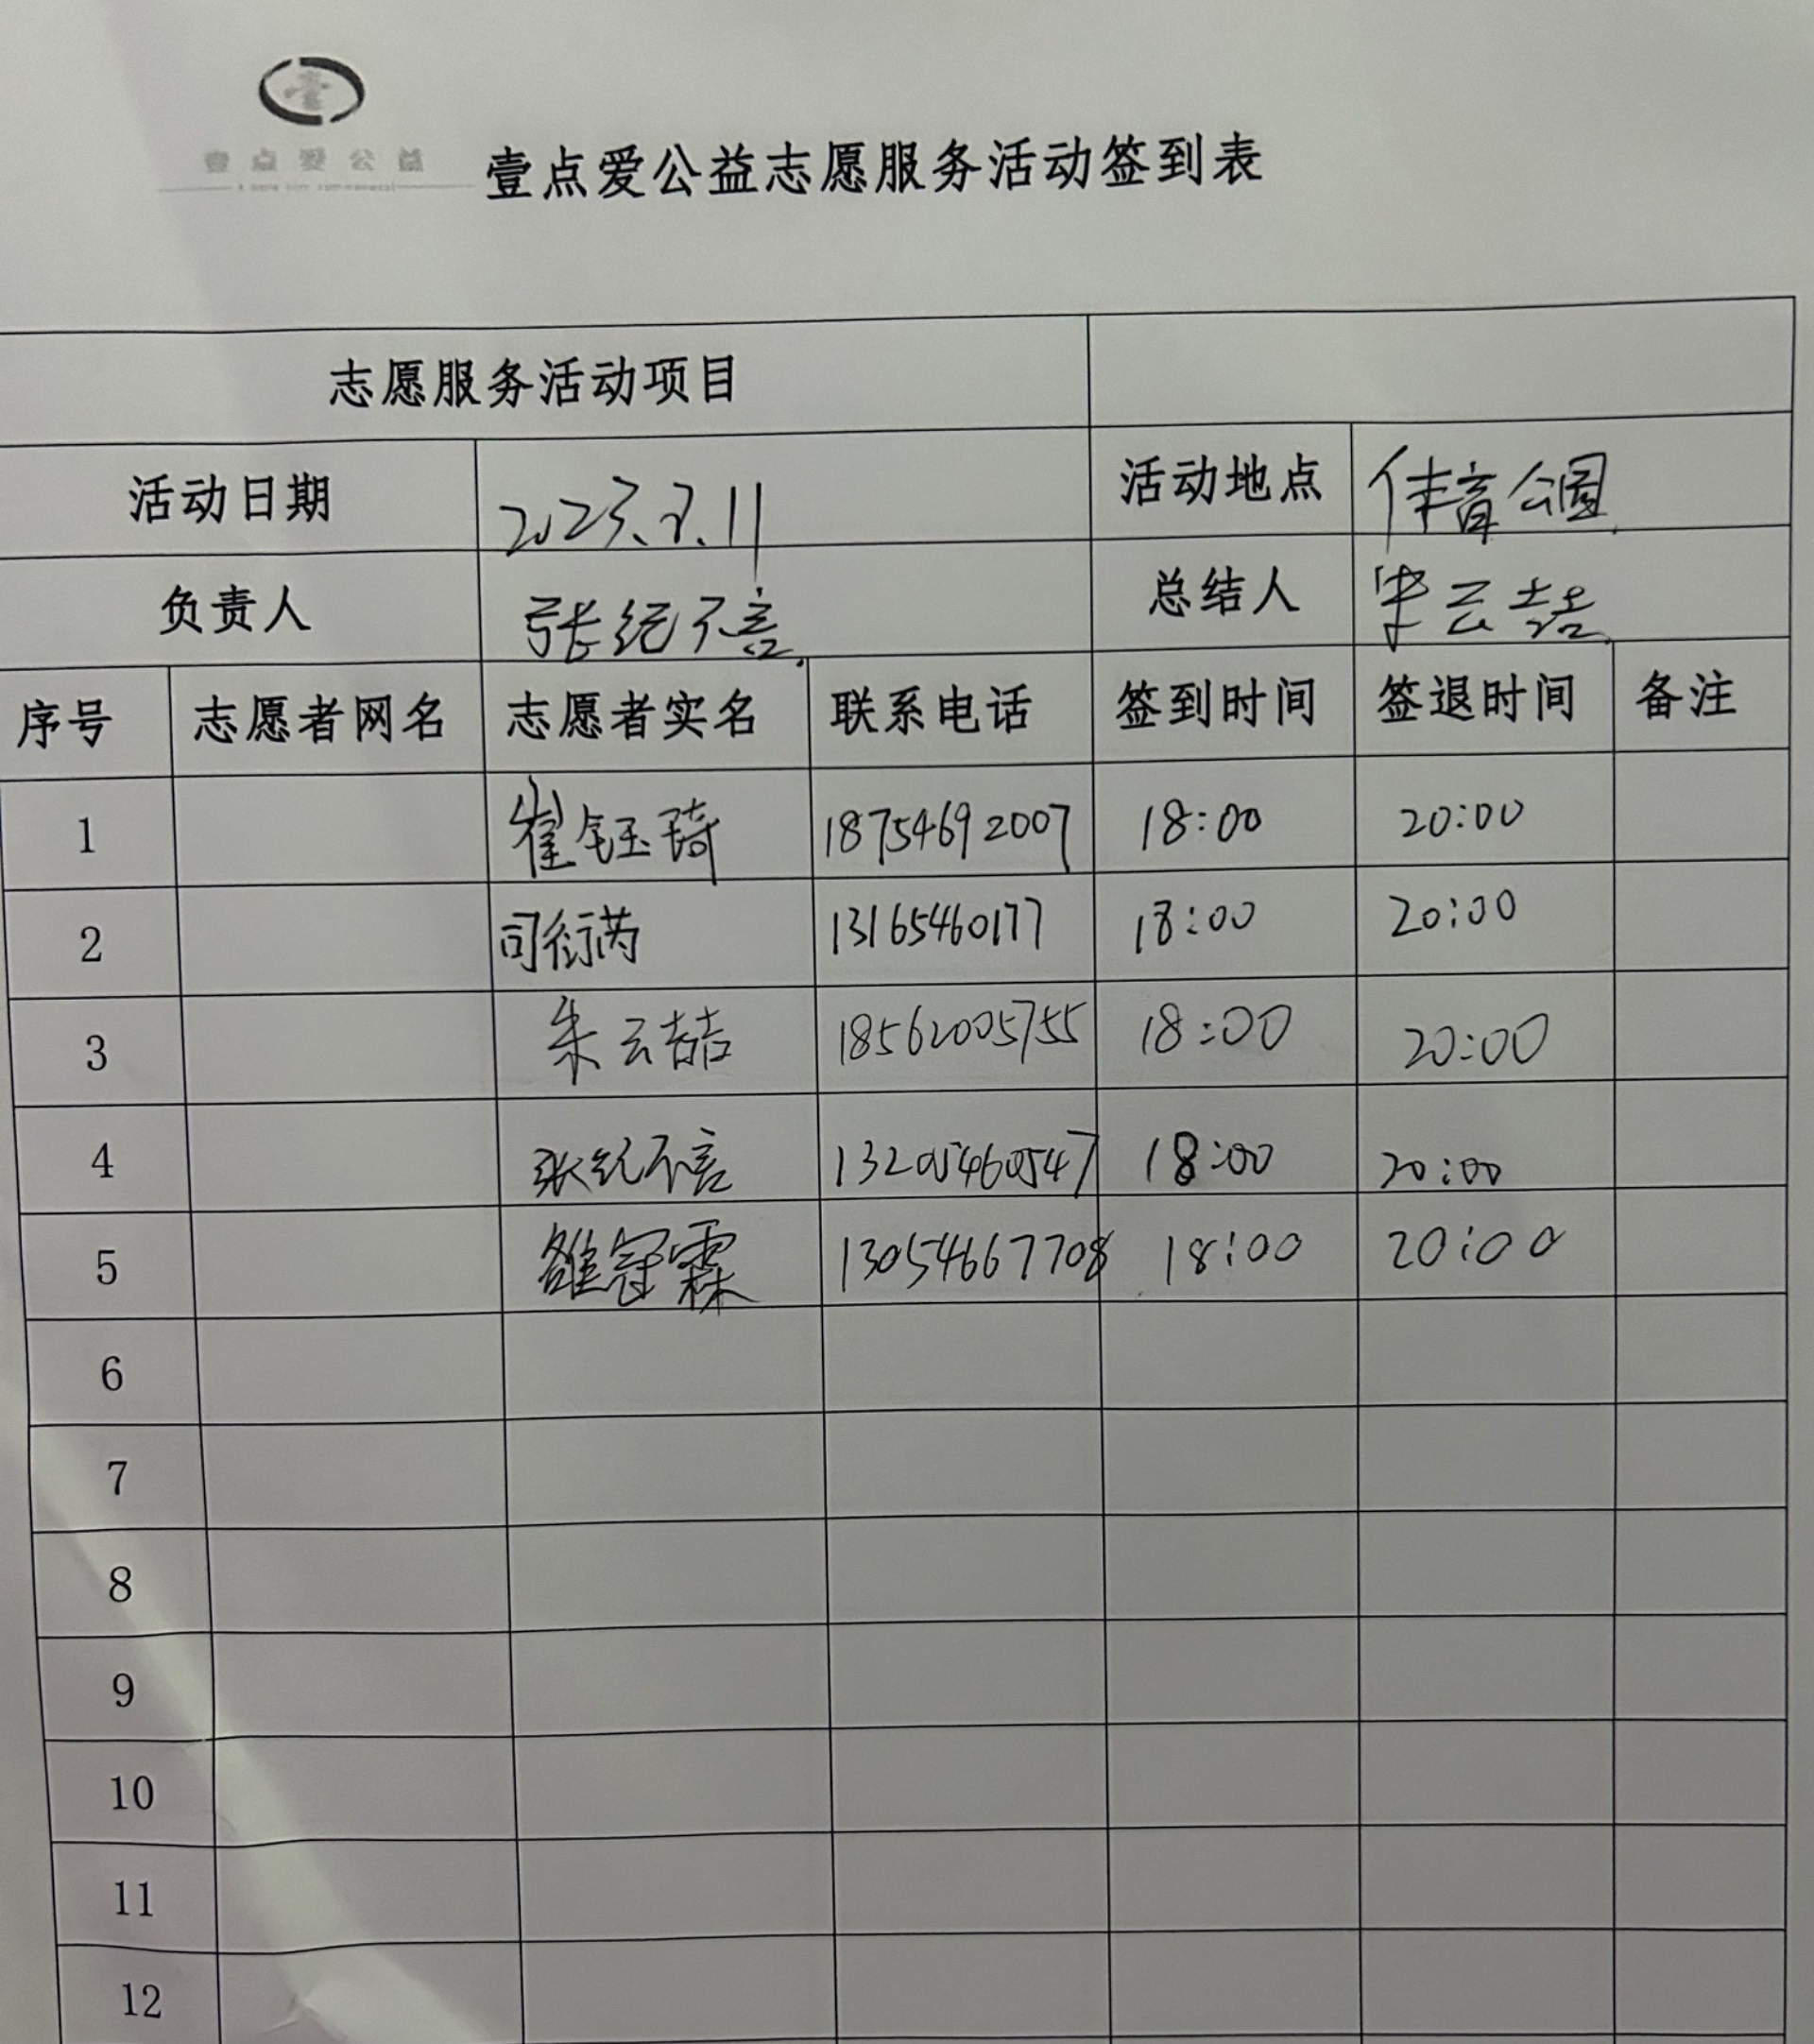 壹点爱公益
壹点爱公益志愿服务活动签到表
志愿服务活动项目
活动日期 2023.8.11 活动地点 体育公园
负责人 张纪不言 总结人 朱云喆
序号 志愿者网名 志愿者实名 联系电话 签到时间 签退时间 备注
1 崔钰琦 18754692007 18:00 20:00
2 司衍芮 13165460177 18:00 20:00
3 朱云喆 18562005755 18:00 20:00
4 张纪不言 13205460547 18:00 20:00
5 冠霖 13054667708 18:00 20:00
6
7
8
9
10
11
12